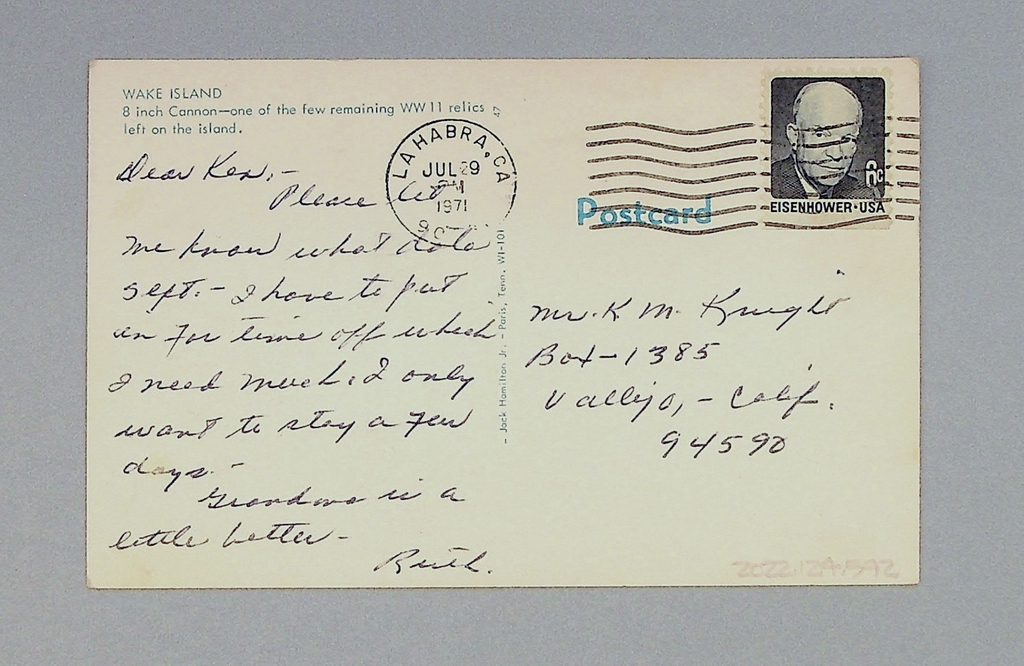 WAKE ISLAND
8 inch Cannon—one of the few remaining WW 11 relics
left on the island.
47
Dear Ken,-
Please let
me know what date
Sept. - I have to put
in for time off which
I need much. I only
want to stay a few
days. -
Grandma is a
little better -
Ruth.
LA HABRA, CA
JUL 29
PM
1971
- Jack Hamilton Jr. - Paris, Tenn. WI-101
Postcard
6c
EISENHOWER·USA
Mr. K M. Knight
Box-1385
Vallejo, - Calif.
94590